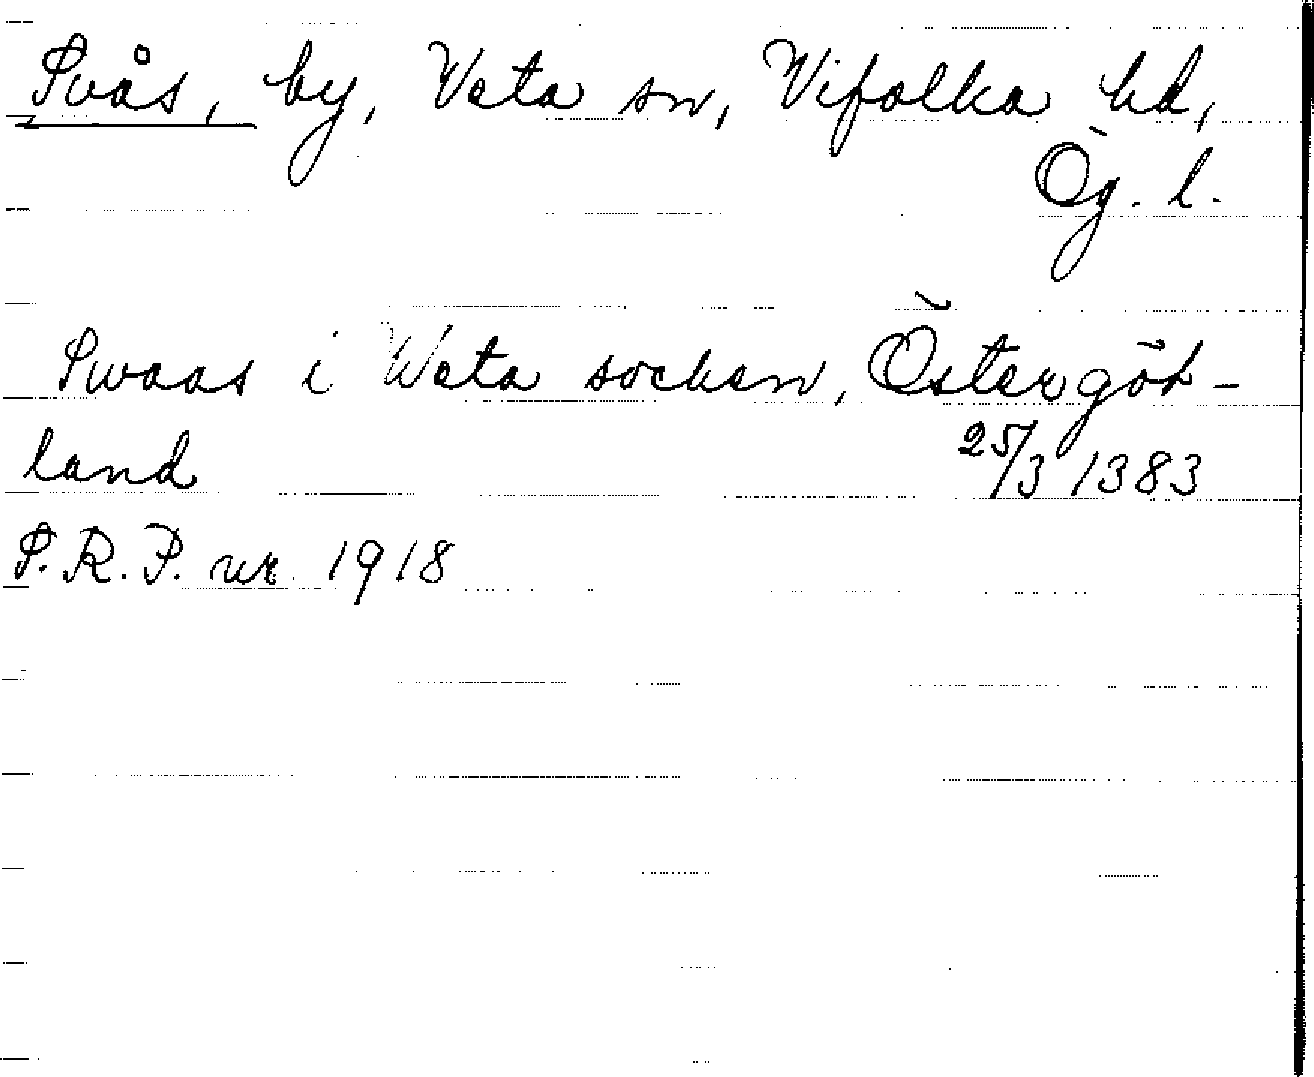 Svås, by, Veta sn, Vifolka hd,
Ög. l.
Swaas i Weta socken, Östergöt-
land 25/3 1383
S.R.P. nr 1918